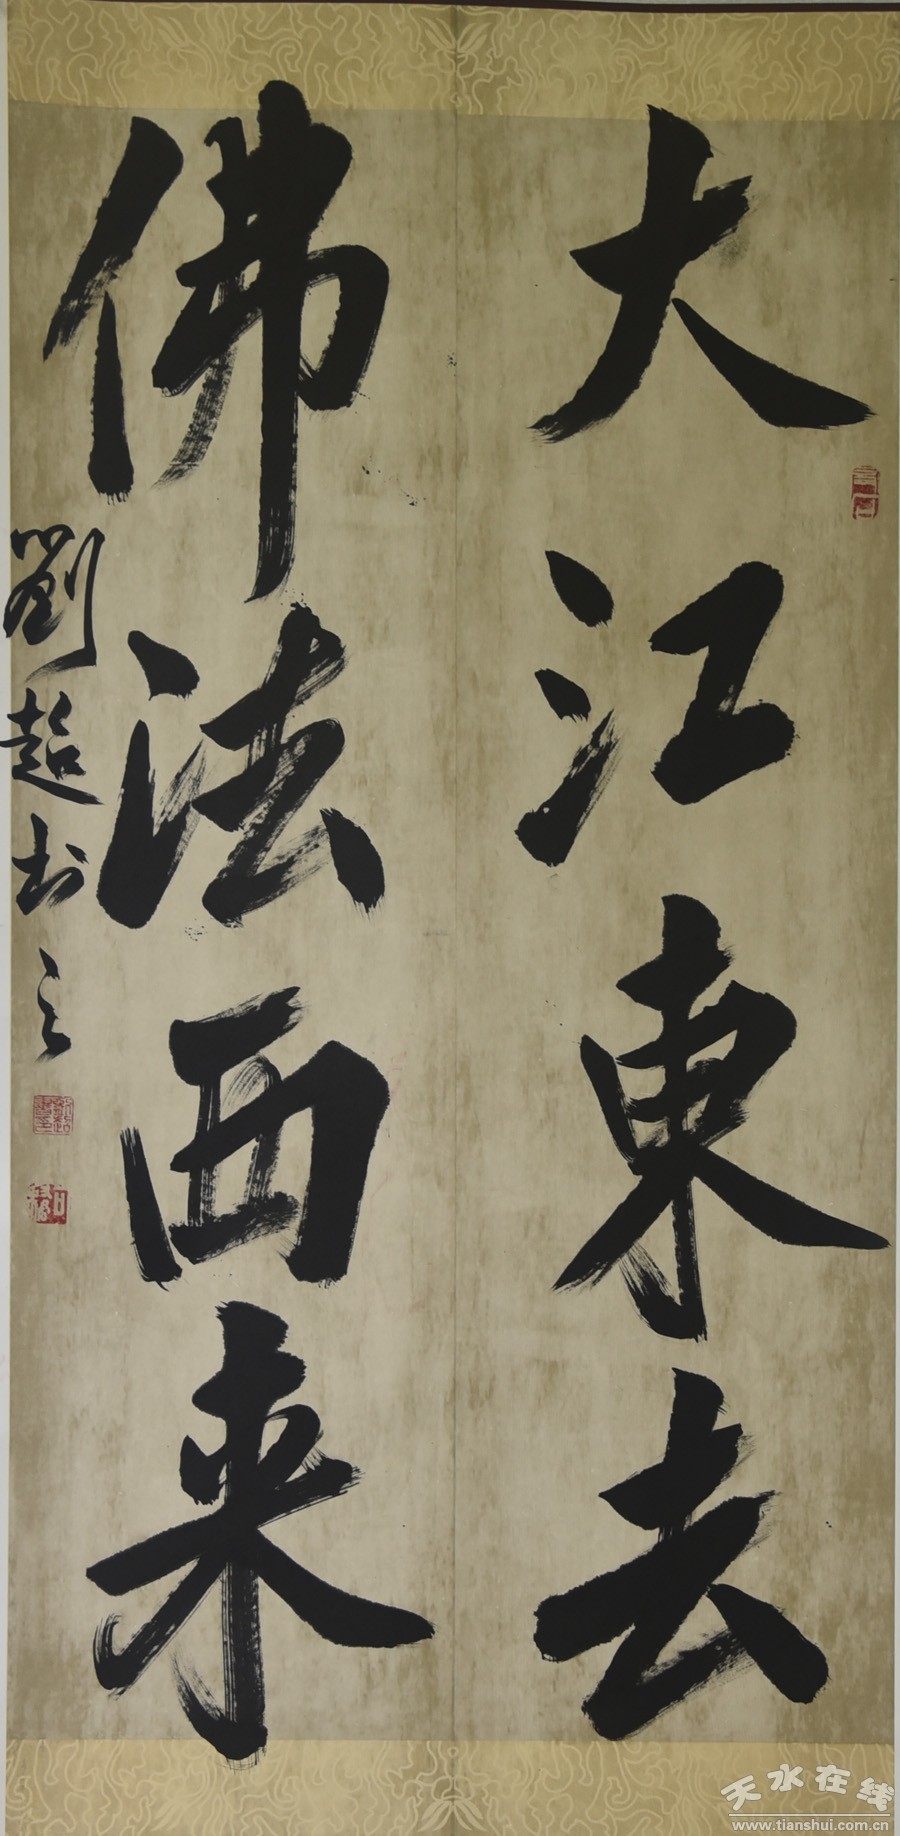 大江東去
佛法西来
劉超书之
天水在线
www.tianshui.com.cn